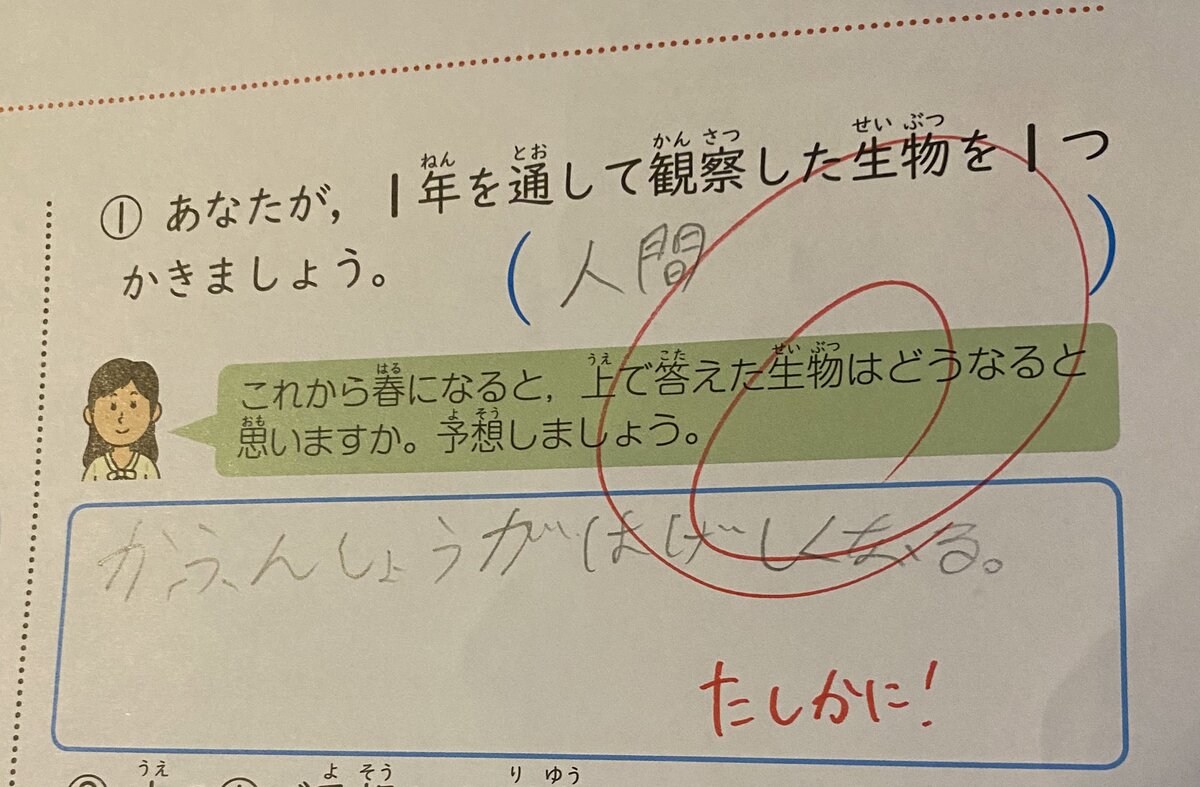 ① あなたが，1年を通して観察した生物を1つ
かきましょう。
（人間）
これから春になると，上で答えた生物はどうなると
思いますか。予想しましょう。
かふんしょうがはげしくなる。
たしかに！